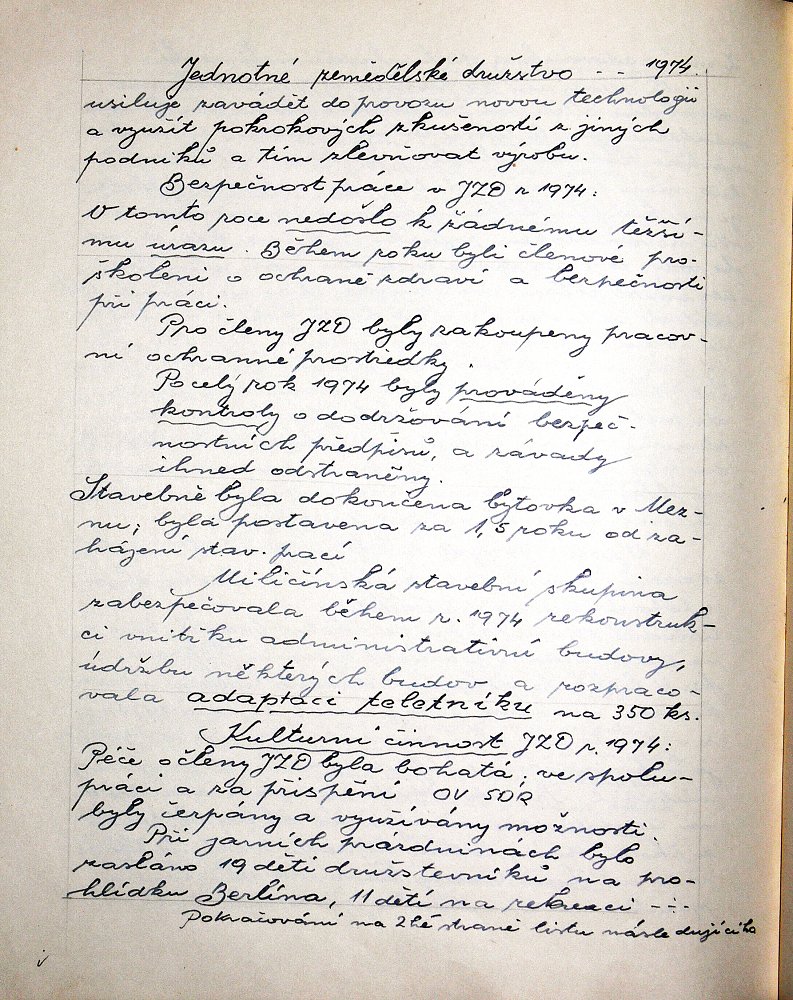 Jednotné zemědělské družstvo -- 1974.
usiluje zavádět do provozu novou technologii
a využít pokrokových zkušeností z jiných
podniků a tím zlevňovat výrobu.
Bezpečnost práce v JZD r 1974:
V tomto roce nedošlo k žádnému těžší-
mu úrazu. Během roku byli členové pro-
školeni o ochraně zdraví a bezpečnosti
při práci.
Pro členy JZD byly zakoupeny pracov-
ní ochranné prostředky.
Po celý rok 1974 byly prováděny
kontroly o dodržování bezpeč-
nostních předpisů, a závady
ihned odstraněny.
Stavebně byla dokončena bytovka v Mez-
nu; byla postavena za 1,5 roku od za-
házení stav. prací
Miličínská stavební skupina
zabezpečovala během r. 1974 rekonstruk-
ci vnitřku administrativní budovy,
údržbu některých budov a rozpraco-
vala adaptaci teletníku na 350 ks.
Kulturní činnost JZD r. 1974:
Péče o členy JZD byla bohatá; ve spolu-
práci a za přispění OV SDR
byly čerpány a využívány možnosti.
Při jarních prázdninách bylo
zasláno 19 dětí družstevníků na pro-
hlídku Berlína, 11 dětí na rekreaci -:-
Pokračování na 2hé straně listu následujícího